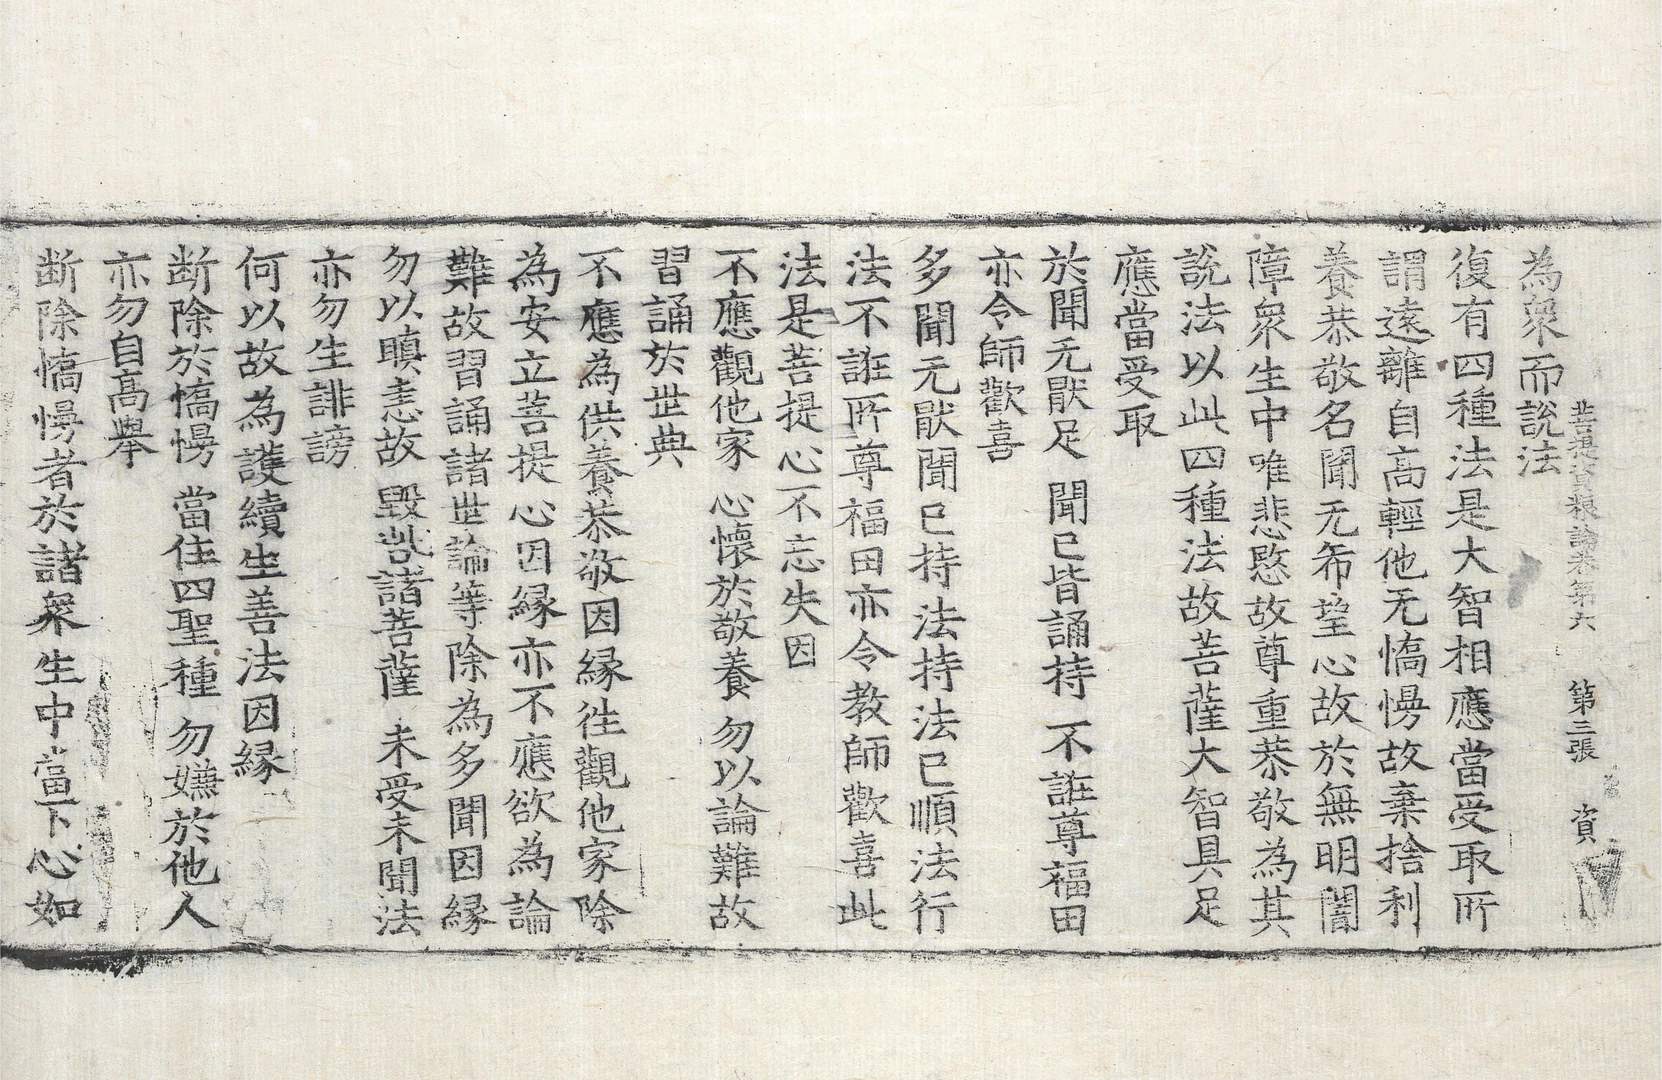 菩提資粮論卷第六 第三張 資
為衆而説法
復有四種法是大智相應當受取所
謂遠離自高輕他无憍慢故棄捨利
養恭敬名聞无希望心故於無明闇
障衆生中唯悲愍故尊重恭敬為其
說法以此四種法故菩薩大智具足
應當受取
於聞无猒足 聞已皆誦持 不誑尊福田
亦令師歡喜
多聞无猒聞已持法持法已順法行
法不誑所尊福田亦令教師歡喜此
法是菩提心不忘失因
不應觀他家 心懷於敬養 勿以論難故
習誦於世典
不應為供養恭敬因縁往觀他家除
為安立菩提心因縁亦不應欲為論
難故習誦諸世論等除為多聞因縁
勿以瞋恚故 毀呰諸菩薩 未受未聞法
亦勿生誹謗
何以故為護續生善法因縁
断除於憍慢 當住四聖種 勿嫌於他人
亦勿自高舉
断除憍慢者於諸衆生中當下心如